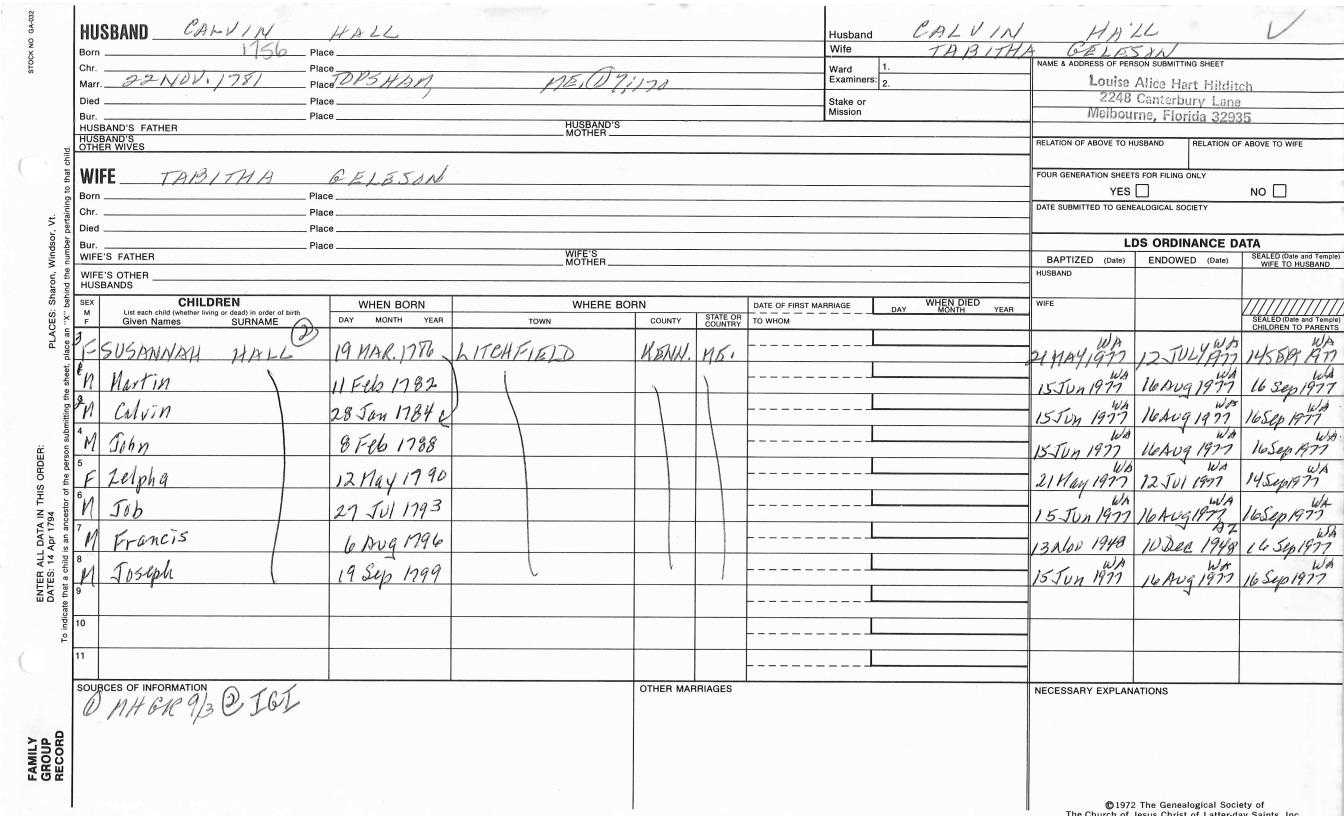 STOCK NO GA-032
PLACES: Sharon, Windsor, Vt.
ENTER ALL DATA IN THIS ORDER:
DATES: 14 Apr 1794
To indicate that a child is an ancestor of the person submitting the sheet, place an "X" behind the number pertaining to that child.
FAMILY
GROUP
RECORD
HUSBAND CALVIN HALL
Born 1756 Place
Chr. Place
Marr. 22 NOV. 1781 Place TOPSHAM, ME,
Died Place
Bur. Place
HUSBAND'S FATHER HUSBAND'S MOTHER
HUSBAND'S OTHER WIVES
WIFE TABITHA GELESON
Born Place
Chr. Place
Died Place
Bur. Place
WIFE'S FATHER WIFE'S MOTHER
WIFE'S OTHER HUSBANDS
Husband CALVIN HALL
Wife TABITHA GELESON
Ward Examiners: 1.
2.
Stake or Mission
NAME & ADDRESS OF PERSON SUBMITTING SHEET
Louise Alice Hart Hilditch
2248 Canterbury Lane
Melbourne, Florida 32935
RELATION OF ABOVE TO HUSBAND RELATION OF ABOVE TO WIFE
FOUR GENERATION SHEETS FOR FILING ONLY
YES NO
DATE SUBMITTED TO GENEALOGICAL SOCIETY
LDS ORDINANCE DATA
BAPTIZED (Date) ENDOWED (Date) SEALED (Date and Temple) WIFE TO HUSBAND
HUSBAND
WIFE
SEALED (Date and Temple) CHILDREN TO PARENTS
SEX M F CHILDREN WHEN BORN WHERE BORN DATE OF FIRST MARRIAGE WHEN DIED
List each child (whether living or dead) in order of birth
Given Names SURNAME DAY MONTH YEAR TOWN COUNTY STATE OR COUNTRY TO WHOM DAY MONTH YEAR
3 F SUSANNAH HALL ② 19 MAR. 1786 LITCHFIELD KENN. ME. 21 MAY 1977 WA 12 JULY 1977 WA 14 SEP 1977 WA
1 M Martin 11 Feb 1782 15 Jun 1977 WA 16 Aug 1977 WA 16 Sep 1977 WA
2 M Calvin 28 Jan 1784 15 Jun 1977 WA 16 Aug 1977 WA 16 Sep 1977 WA
4 M John 8 Feb 1788 15 Jun 1977 WA 16 Aug 1977 WA 16 Sep 1977 WA
5 F Zelpha 12 May 1790 21 May 1977 WA 12 Jul 1977 WA 14 Sep 1977 WA
6 M Job 27 Jul 1793 15 Jun 1977 WA 16 Aug 1977 WA 16 Sep 1977 WA
7 M Francis 6 Aug 1796 13 Nov 1948 10 Dec 1948 AZ 16 Sep 1977 WA
8 M Joseph 19 Sep 1799 15 Jun 1977 WA 16 Aug 1977 WA 16 Sep 1977 WA
9
10
11
SOURCES OF INFORMATION OTHER MARRIAGES NECESSARY EXPLANATIONS
① NHGR 9/3 ② IGI
©1972 The Genealogical Society of
The Church of Jesus Christ of Latter-day Saints, Inc.